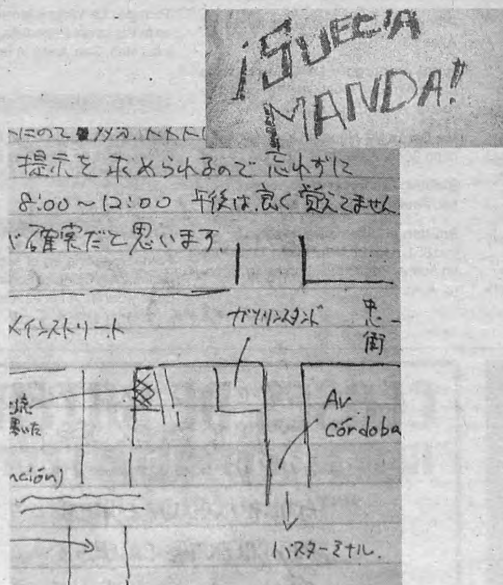 ¡SUECIA
MANDA!!
提示を求められるので忘れずに
8:00～12:00 午後は良く覚えてません
確実だと思います
メインストリート
ガソリンスタンド
Av
córdoba
nción)
バスターミナル